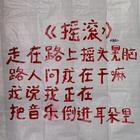 《摇滚》
走在路上摇头晃脑
路人问我在干嘛
我说我正在
把音乐倒进耳朵里